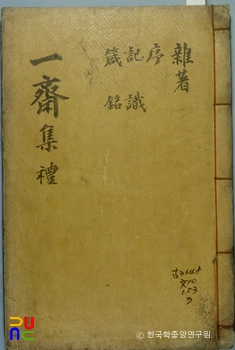 雜著
序
記識
箴銘
一齋集 禮
ⓒ 한국학중앙연구원.